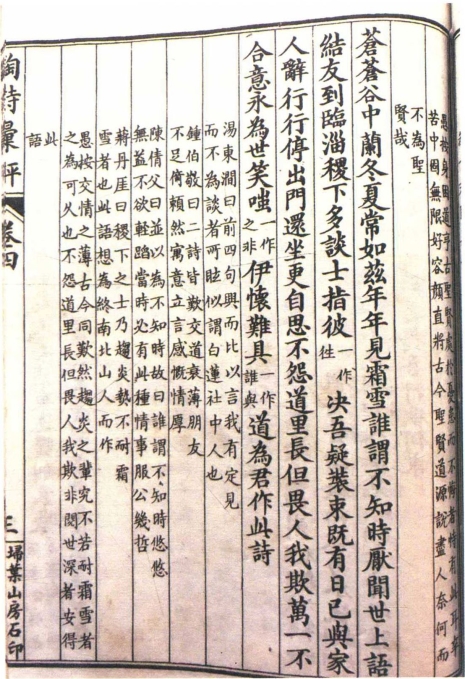 愚按身困道亨古聖賢處於憂患而不悔者恃有此耳辛
苦中困無限好容顏直將古今聖賢道源說盡人奈何而
不為聖
賢哉
蒼蒼谷中蘭冬夏常如茲年年見霜雪誰謂不知時厭聞世上語
結友到臨淄稷下多談士指彼一作往決吾疑裝束既有日已與家
人辭行行停出門還坐更自思不怨道里長但畏人我欺萬一不
合意永為世笑嗤一作之非伊懷難具一作誰與道為君作此詩
湯東澗曰前四句興而比以言我有定見
而不為談者所眩似謂白蓮社中人也
鍾伯敬曰二詩皆歎交道衰薄朋友
不足倚賴然寓意立言感慨情厚
陳倩父曰並以為不知時故曰誰謂不知時悠悠
無益不欲輕蹈當時必有此種情事服公幾哲
蔣丹崖曰稷下之士乃趨炎勢不耐霜
雪者也此語想為終南北山人而作
愚按交情之薄古今同歎然趨炎之輩究不若耐霜雪者
之為可久也不怨道里長但畏人我欺非閱世深者安得
此
語
陶詩彙評
卷四
三
掃葉山房石印